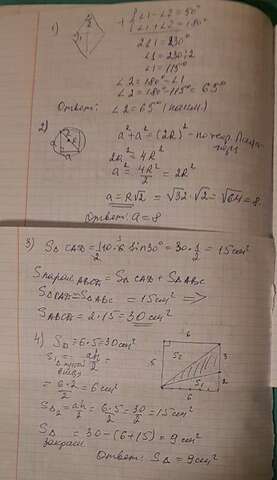 1)
+ { ∠1 - ∠2 = 50°
∠1 + ∠2 = 180°
2∠1 = 230°
∠1 = 230:2
∠1 = 115°
∠2 = 180° - ∠1
∠2 = 180° - 115° = 65°
Ответ: ∠2 = 65°
2) a² + a² = (2R)² - по теор. Пифагора
2a² = 4R²
a² = 4R²/2 = 2R²
a = R√2 = √32 · √2 = √64 = 8
Ответ: a = 8
3) S△ CAD = 1/2 · 10 · 6 sin30° = 30 · 1/2 = 15 см²
Sпарал ABCD = S△ CAD + S△ ABC
S△ CAD = S△ ABC = 15 см² ⇒
SABCD = 2 · 15 = 30 см²
4) S□ = 6 · 5 = 30 см²
S1 = ah/2 =
= 6·2/2 = 6 см²
S△2 = ah/2 = 6·5/2 = 30/2 = 15 см²
S△ = 30 - (6+15) = 9 см²
закраш.
Ответ: S△ = 9 см²
6
5
S2
3
2
S1
6